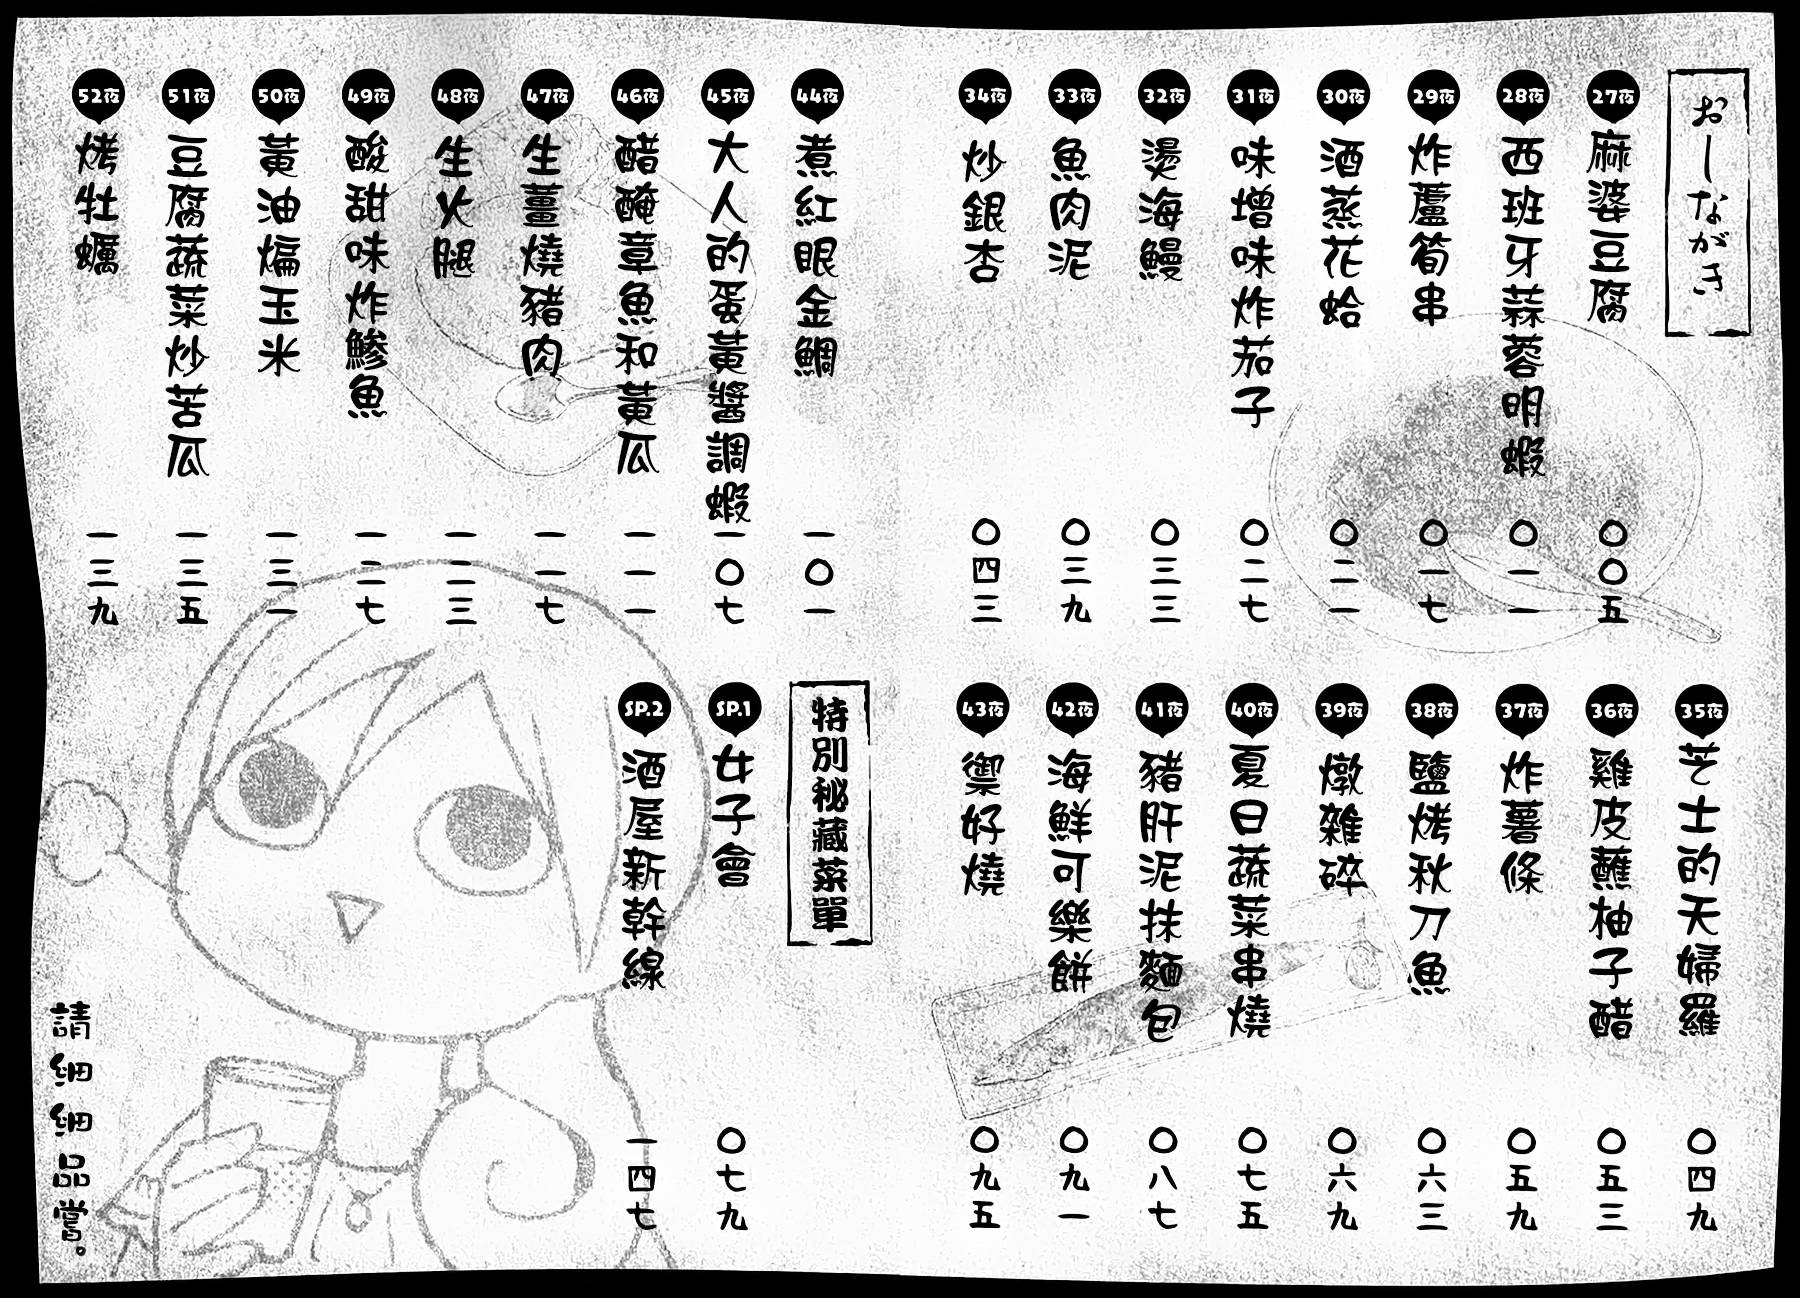 おしながき
27夜 麻婆豆腐 〇〇五
28夜 西班牙蒜蓉明蝦 〇一一
29夜 炸蘆筍串 〇一七
30夜 酒蒸花蛤 〇二一
31夜 味增味炸茄子 〇二七
32夜 燙海鰻 〇三三
33夜 魚肉泥 〇三九
34夜 炒銀杏 〇四三
35夜 芝士的天婦羅 〇四九
36夜 雞皮蘸柚子醋 〇五三
37夜 炸薯條 〇五九
38夜 鹽烤秋刀魚 〇六三
39夜 燉雜碎 〇六九
40夜 夏日蔬菜串燒 〇七五
41夜 豬肝泥抹麵包 〇八七
42夜 海鮮可樂餅 〇九一
43夜 禦好燒 〇九五
44夜 煮紅眼金鯛 一〇一
45夜 大人的蛋黃醬調蝦 一〇七
46夜 醋醃章魚和黃瓜 一一一
47夜 生薑燒豬肉 一一七
48夜 生火腿 一二三
49夜 酸甜味炸鰺魚 一二七
50夜 黃油煸玉米 一三一
51夜 豆腐蔬菜炒苦瓜 一三五
52夜 烤牡蠣 一三九
特別秘藏菜單
SP.1 女子會 〇七九
SP.2 酒屋新幹線 一四七
請細細品嘗。